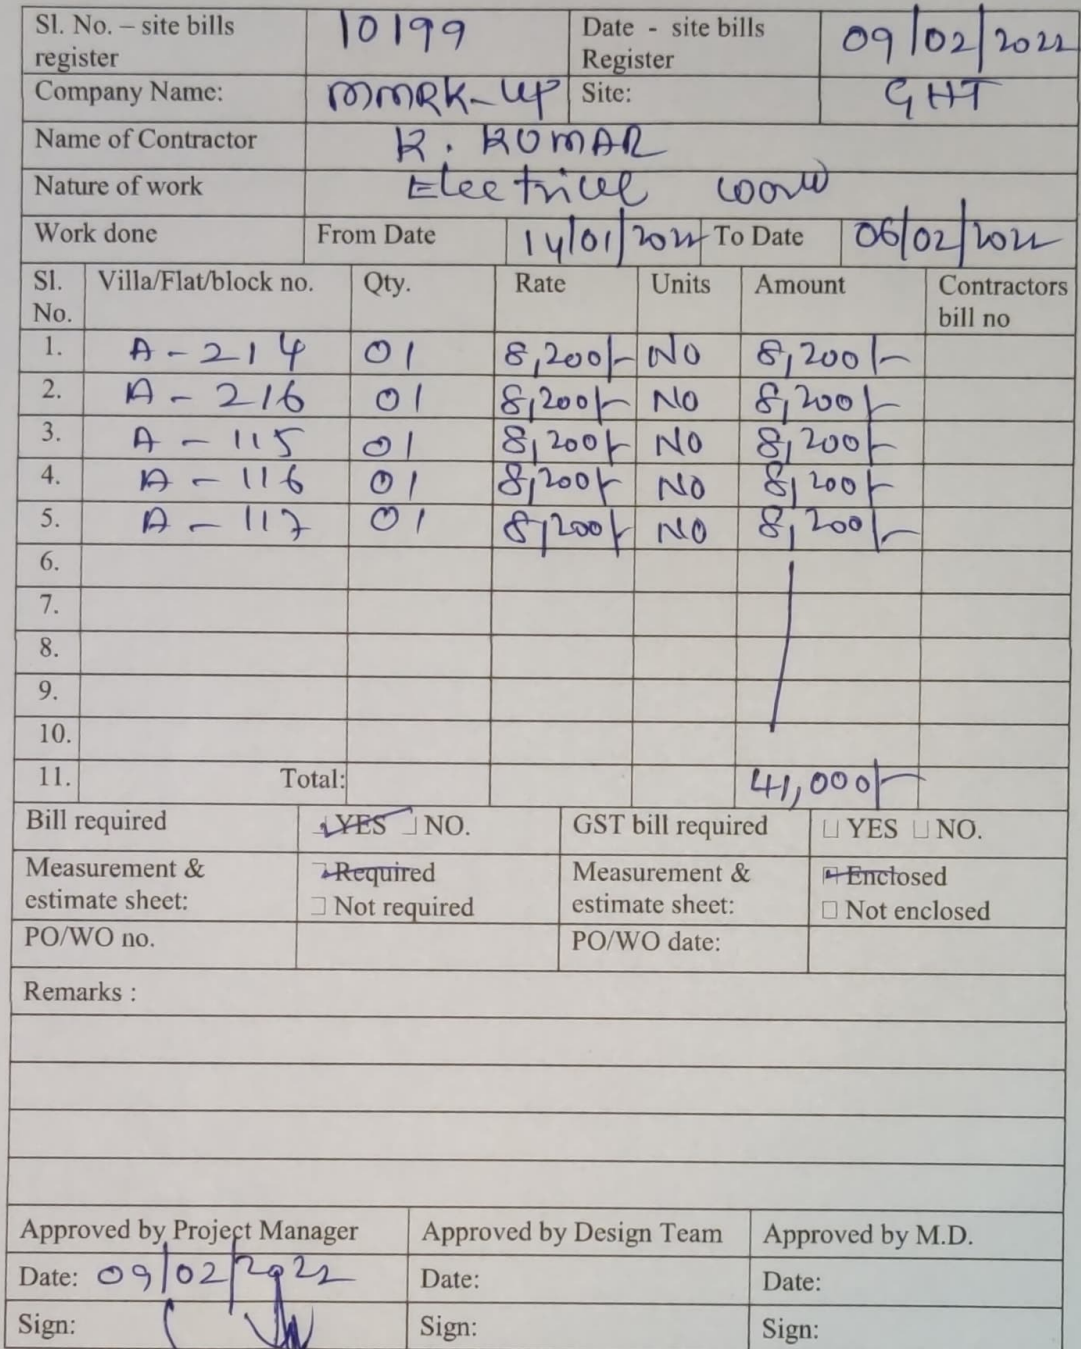 Sl. No. – site bills register 10199 Date - site bills Register 09/02/2022
Company Name: MMRK-UP Site: GHT
Name of Contractor K. KUMAR
Nature of work Electricel
Work done From Date 14/01/2022 To Date 06/02/2022
Sl. No. Villa/Flat/block no. Qty. Rate Units Amount Contractors bill no
1. A - 214 01 8,200/- NO 8,200/-
2. A - 216 01 8,200/- NO 8,200/-
3. A - 115 01 8,200/- NO 8,200/-
4. A - 116 01 8,200/- NO 8,200/-
5. A - 117 01 8,200/- NO 8,200/-
6.
7.
8.
9.
10.
11. Total: 41,000/-
Bill required YES NO. GST bill required YES NO.
Measurement & estimate sheet: Required Not required Measurement & estimate sheet: Enclosed Not enclosed
PO/WO no. PO/WO date:
Remarks :
Approved by Project Manager Approved by Design Team Approved by M.D.
Date: 09/02/2022 Date: Date:
Sign: Sign: Sign: